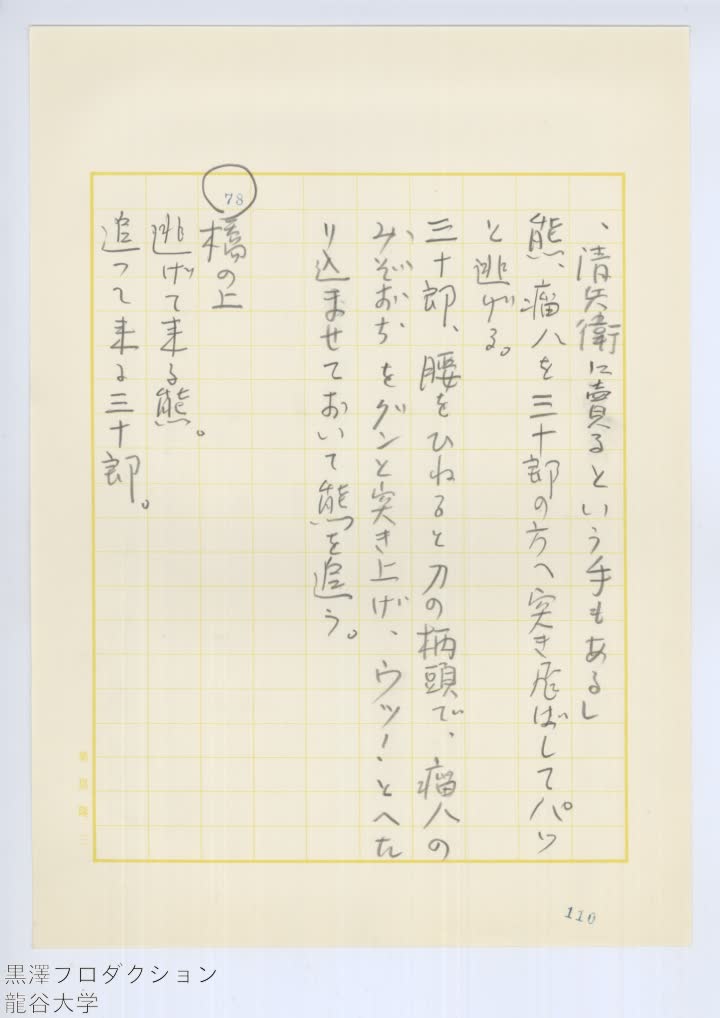 、清兵衛に賣るという手もあるし
熊、瘤八を三十郎の方へ突き飛ばしてパッ
と逃げる。
三十郎、腰をひねると刀の柄頭で、瘤八の
みぞおちをグンと突き上げ、ウッ！とへた
り込ませておいて熊を追う。
78
橋の上
逃げて来る熊。
追って来る三十郎。
110
黒澤プロダクション
龍谷大学